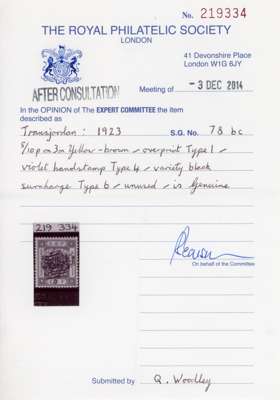 No. 219334
THE ROYAL PHILATELIC SOCIETY
LONDON
41 Devonshire Place
London W1G 6JY
AFTER CONSULTATION
Meeting of - 3 DEC 2014
In the OPINION OF The EXPERT COMMITTEE the item
described as
Transjordan: 1923 S.G. No. 78 bc
5/10p on 3m Yellow-brown - overprint Type 1 -
violet handstamp Type 4 - variety black
surcharge Type 6 - unused - is Genuine
219 334
On behalf of the Committee
Submitted by Q. Woodley